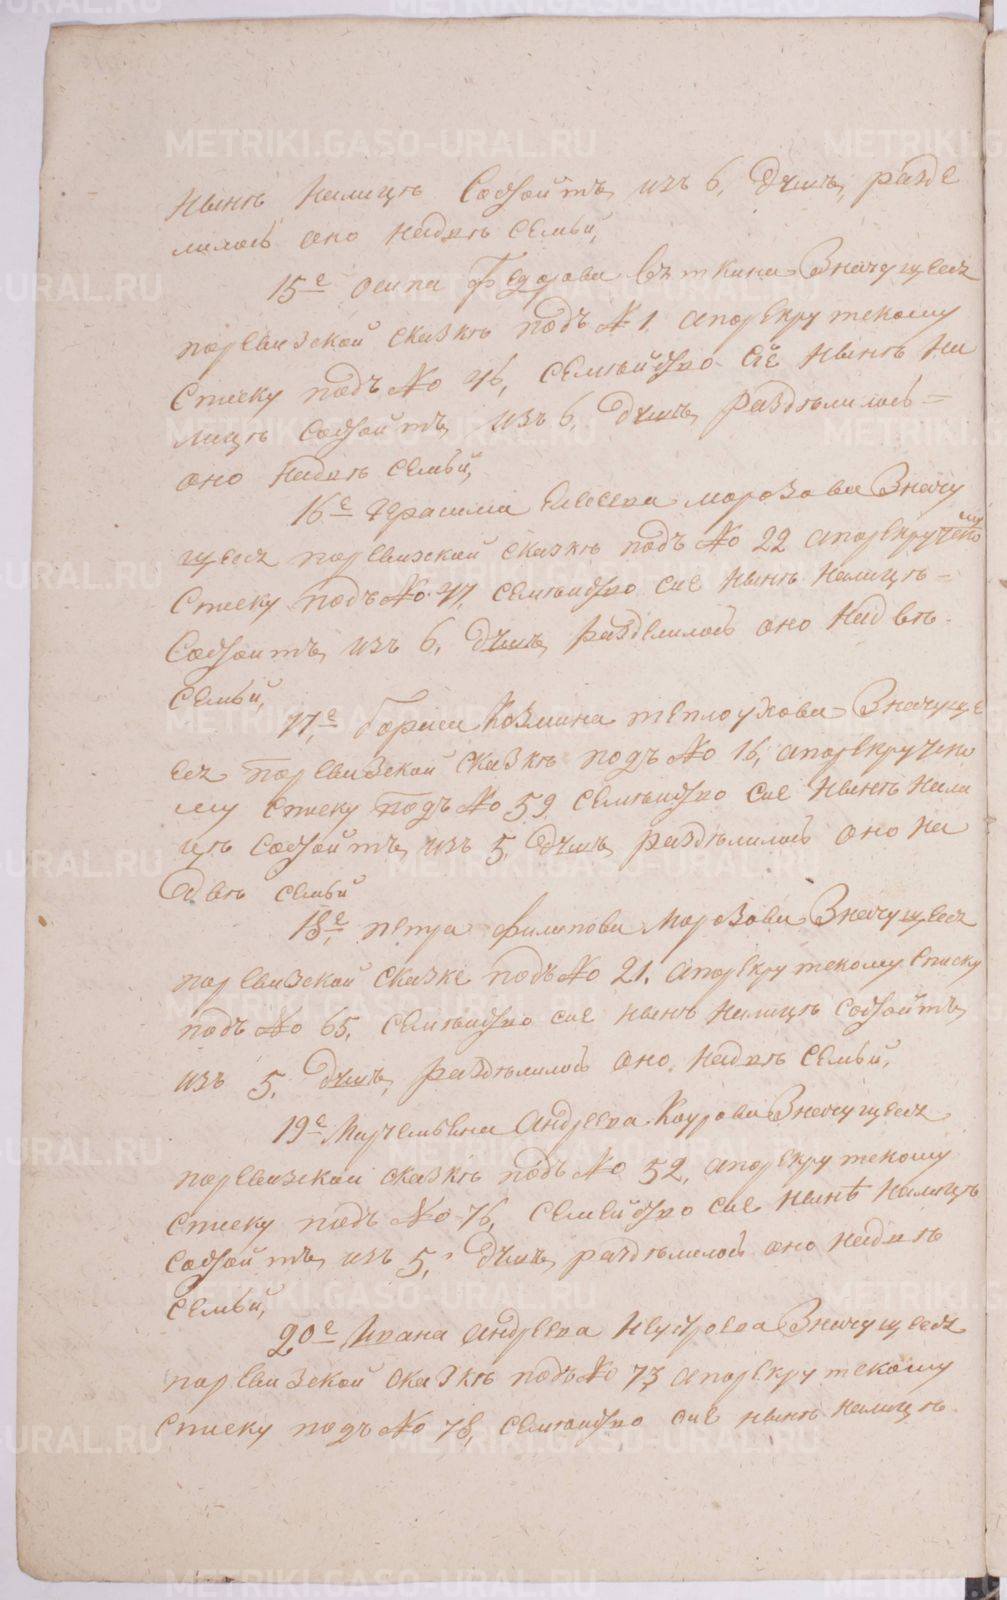 нынѣ налицѣ состоитъ изъ 6, душъ, разде
лилось оно надвѣ семьи,
15е осипа Федорова вяткина Значущеесѧ
поревизской сказкѣ подъ № 1. апорекрутскому
списку подъ № 46, семѣйство сiе нынѣ на
лицѣ состоитъ изъ 6, душъ, раздѣлилось=
оно надвѣ семьи,
16е Герасима Елесеева морозова Значу
щеесѧ поревизской сказкѣ подъ № 22 апорекрутско
му
списку подъ № 47, семѣйство сие нынѣ налицѣ=
состоитъ изъ 6, душъ, разделилось оно надвѣ.
семьи,
17,е Бориса Козмина теплоухова Значуще
есѧ поревизской сказкѣ подъ № 16, апорекрутско
му списку подъ № 59 семѣйство сие нынѣ нали
цѣ состоитъ изъ 5, душъ, раздѣлилось оно на
двѣ семьи
18е, петра филипова Морозова Значущеесѧ
поревизской сказке подъ № 21. апорекрутскому списку
подъ № 65, семѣйство сие нынѣ налицѣ состоитъ
изъ 5, душъ, раздѣлилось оно надвѣ семьи,
19е Марчемьяна Андреева Каурова Значущеесѧ
поревизской сказкѣ подъ № 52, апорекрутскому
списку подъ № 76, семейство сие нынѣ налицѣ
состоитъ изъ 5, душъ, раздѣлилось оно надвѣ
семьи,
20е Ивана андреева Неустроева Значущеесѧ
поревизской сказкѣ подъ № 73 апорекрутскому
списку подъ № 78, семѣйство сие нынѣ налицѣ
METRIKI.GASO-URAL.RU